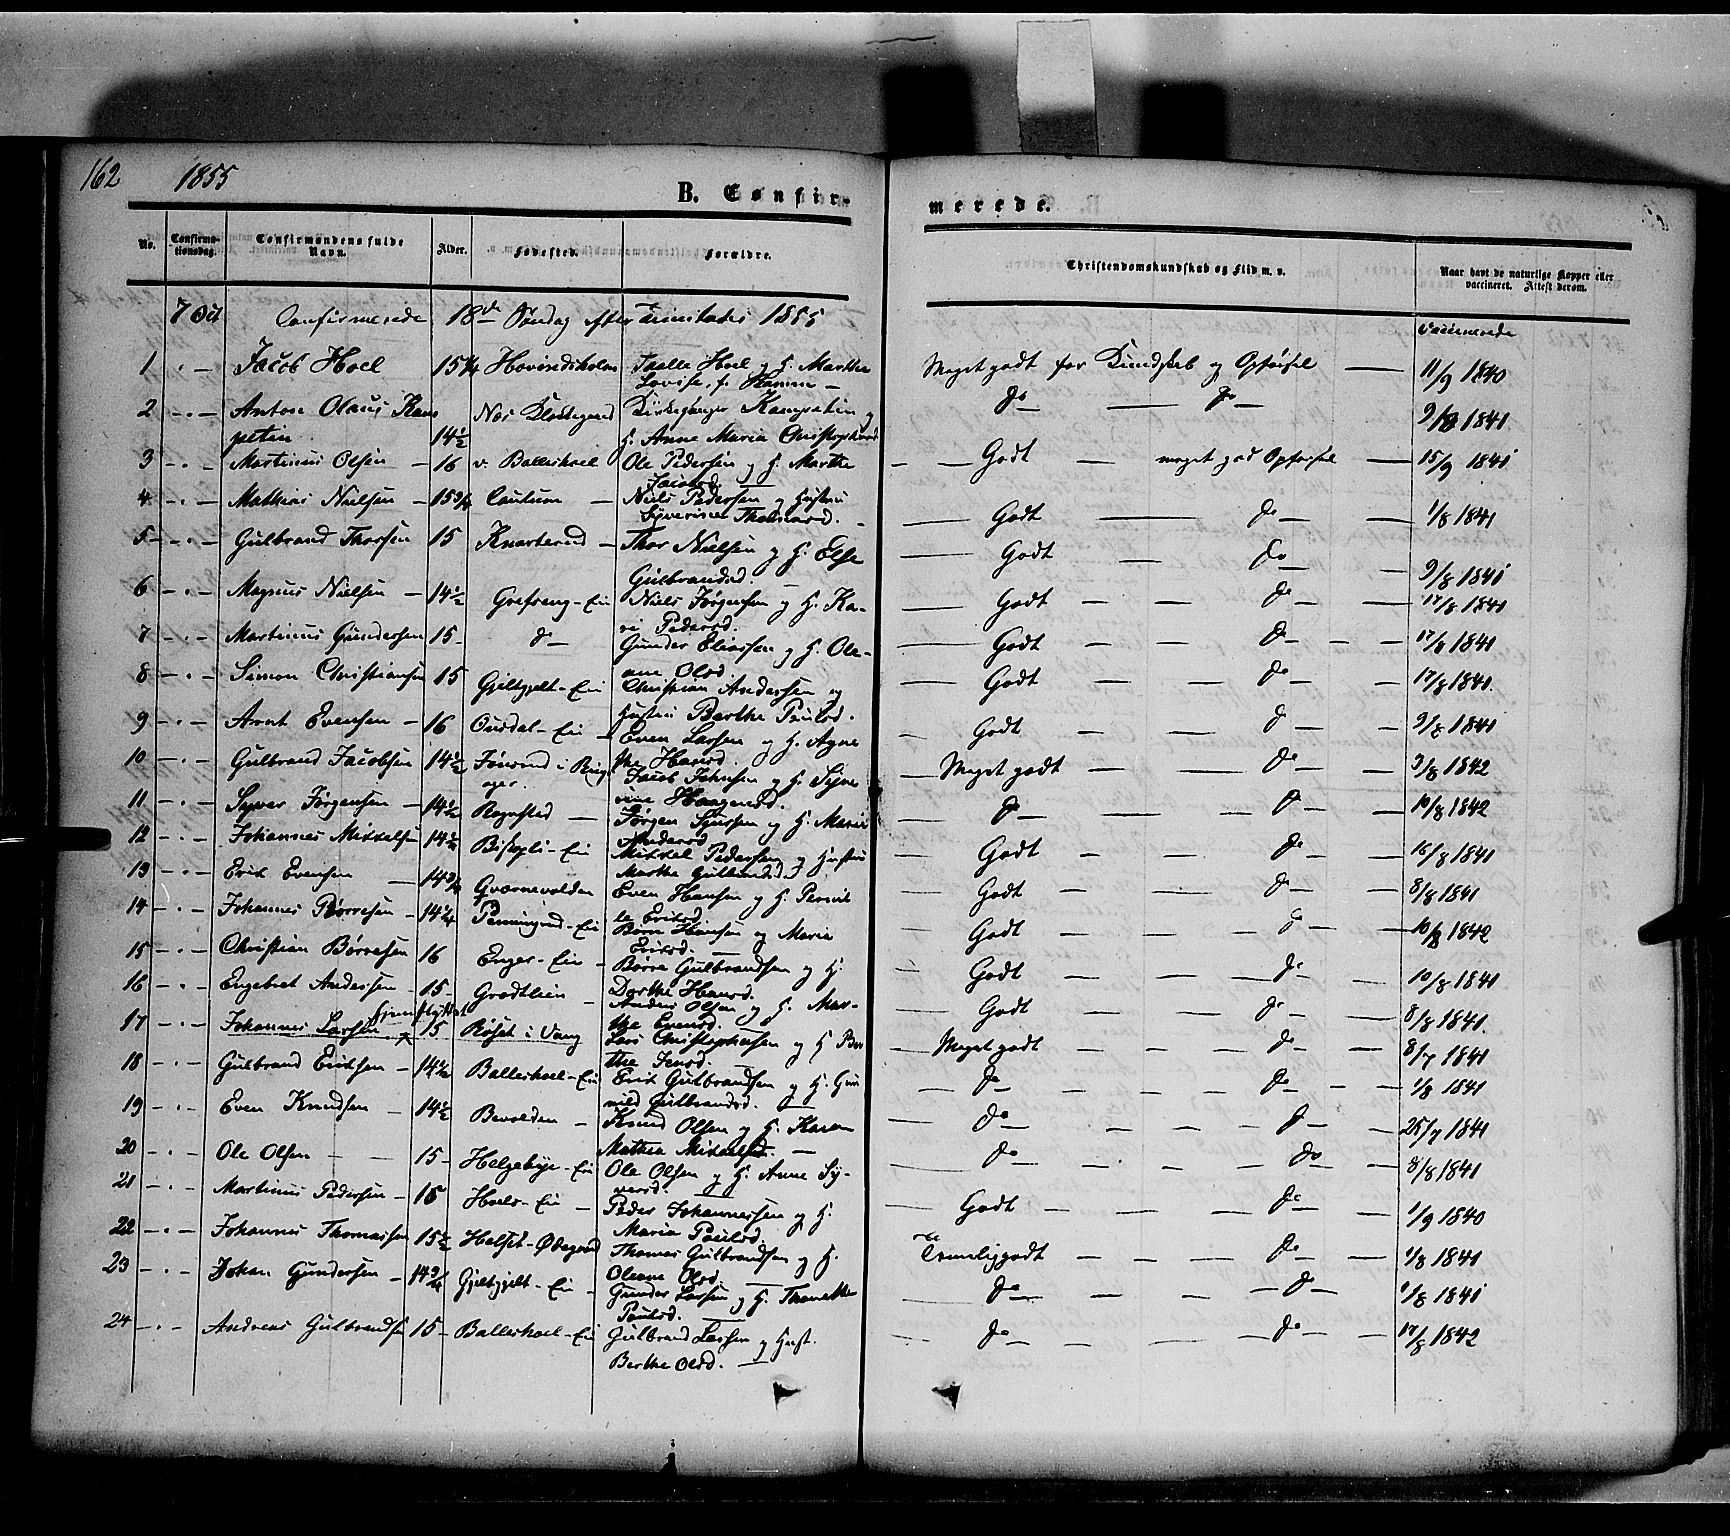 162 1855
B. Confirmerede.
No. Confirmationsdag. Confirmandens fulde Navn. Alder. Fødested. Forældre. Christendomskundskab og Flid m. v. Naar havt de naturlige Kopper eller vaccineret. Attest derom.
7 Oct Confirmerede 18de Søndag efter Trinitatis 1855 Vaccinerede
1 - - Jacob Hoel 15 1/4 Hovindsholm Taalle Hoel og H. Marthe Meget godt for Kundskab og Opførsel 11/9 1840
Lovise, f.
2 - - Anton Olaus Kam Nes Klokkegaard Kirkesanger Kampestin og do do 9/8 1841
pestin 14 1/2 H. Anne Maria Christophersd
3 - - Martinus Olsen - 16 v. Balleshoel Ole Pedersen og H. Marthe Godt - meget god Opførsel 15/9 1841
Jacobsd.
4 - - Mathias Nielsen - 15 3/4 Niels Pedersen og Hustru Godt do 1/8 1841
Syverine Thomasd.
5 - - Gulbrand Thorsen 15 Thor Nielsen og H. Else Godt do 9/8 1841
Gulbrandsd.
6 - - Magnus Nielsen - 14 1/2 Grefseng-Eie Niels Jørgensen og H. Ka- Godt do 17/8 1841
ri Pedersd.
7 - - Martinus Gundersen 15 - do - Gunder Eliassen og H. Ole- Godt do 17/8 1841
ane Olsd.
8 - - Simon Christiansen 15 Gjeltgjelt-Eie Christian Andersen og Godt do 17/8 1841.
Hustru Berthe Poulsd.
9 - - Arnt Evensen - 16 Ousdal-Eie Even Larsen og H. Agne Godt do 9/8 1841
the Hansd.
10 - - Gulbrand Jacobsen 14 1/2 i Ring- Jacob Johnsen og H. Syve Meget godt do 3/8 1842
ager. rine Haagensd.
11 - - Syver Jørgensen - 14 1/2 Rognsted Jørgen og H. Marie do do 10/8 1842
Andersd
12 - - Johannes Mikkelsen 14 1/2 Biskopli-Eie Mikkel Pedersen og Hustru Godt do 16/8 1841
Marthe Gulbrandsd
13 - - Erik Evensen 14 3/4 Qværnevolden Even Hansen og H. Pernil Godt do 8/8 1841
le Eriksd.
14 - - Johannes Børresen - 14 1/4 Penningrud-Eie Børre Hansen og Maria Godt do 10/8 1842
Eriksd.
15 - - Christian Børresen 16 Enger-Eie Børre Gulbrandsen og H. Godt do 10/8 1841
Dorthe Hansd.
16 - - Engebret Andersen - 15 Grødtlien Anders Olsen og H. Mar- Godt do 8/8 1841.
the Evensd.
17 - - Johannes Larsen 15 Røset i Vang Lars Christophersen og H Ber Meget godt do 8/7 1841
the Jensd.
18 - - Gulbrand Eriksen - 14 1/2 Balleshoel-Eie Erik Gulbrandsen og H. Gun do do 1/8 1841
nild Gulbrandsd.
19 - - Even Knudsen 14 1/2 Bevolden Knud Olsen og H. Karen do do 25/7 1841
Mathea Mikkelsd.
20 - - Ole Olsen 15 Helgebye-Eie Ole Olsen og H. Anne Sy- do do 8/8 1841
versd.
21 - - Martinus Pedersen - 15 Hoels-Eie Peder Johannessen og H. Godt do 1/9 1840
Maria Poulsd.
22 - - Johannes Thomassen 15 1/2 Helset-Øbegaard Thomas Gulbrandsen og H. Temelig godt do 1/8 1841
Oleane Olsd.
23 - - Johan Gundersen - 14 3/4 Gjeltgjelt-Eie Gunder Larsen og H. Thonethe do do 1/8 1841
Poulsd.
24 - - Andreas Gulbrandsen 15 - Balleshoel-Eie Gulbrand Larsen og Hust. do do 17/8 1842
Berthe Olsd.